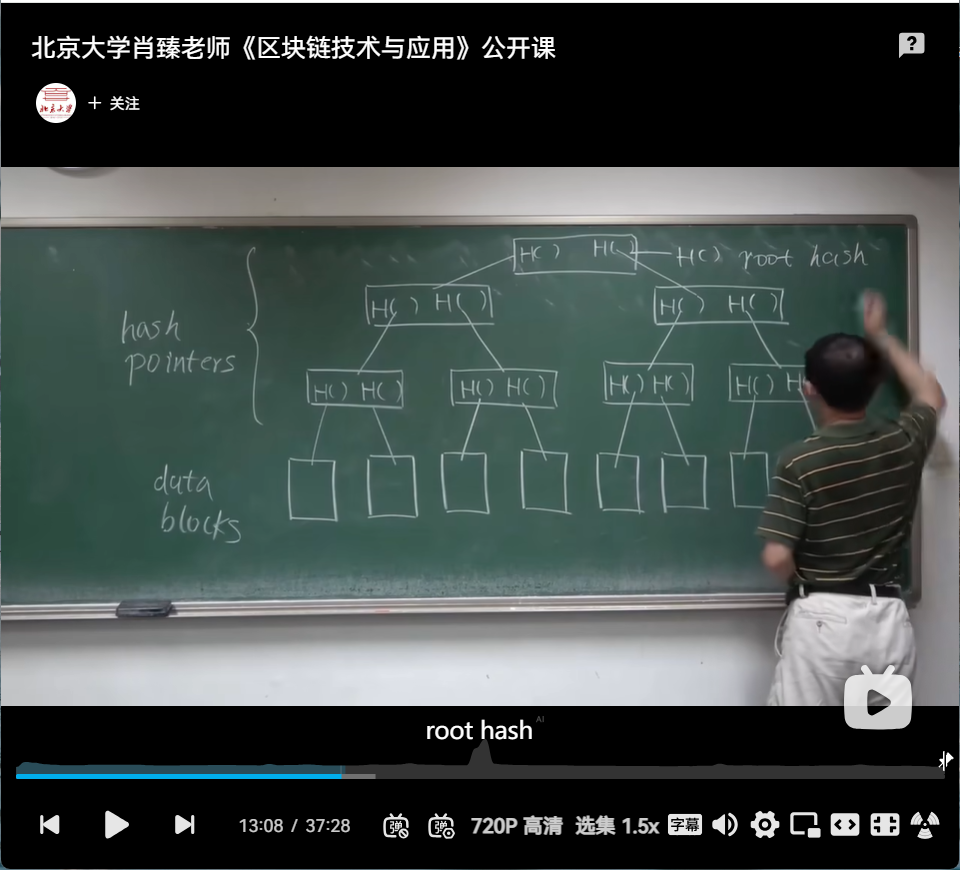 北京大学肖臻老师《区块链技术与应用》公开课
北京大学
+ 关注
H( ) H( ) H( ) root hash
H( ) H( ) H( ) H( )
hash
pointers
H( ) H( ) H( ) H( ) H( ) H( ) H( ) H
data
blocks
root hash AI
13:08 / 37:28 弹 弹 720P 高清 选集 1.5x 字幕